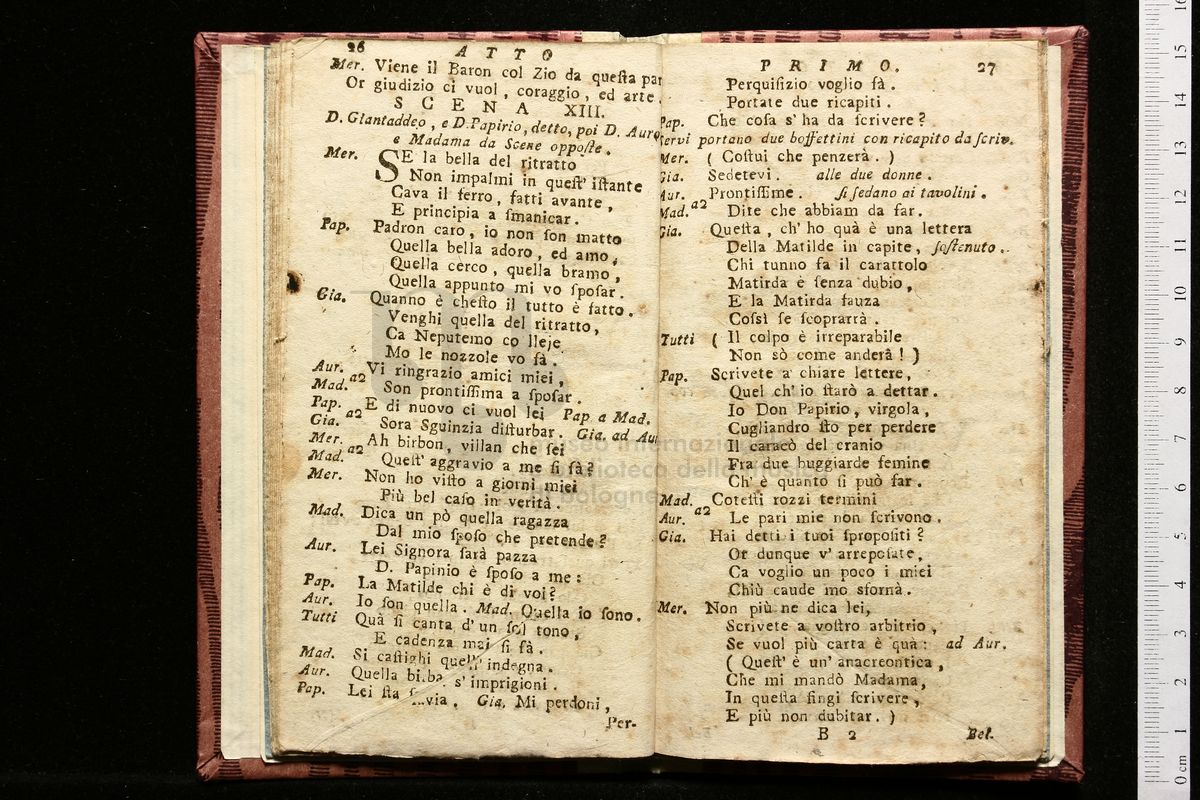 26
A T T O
Mer. Viene il Baron col Zio da queſta par
Or giudizio ci vuol, coraggio, ed arte.
S C E N A XIII.
D. Giantaddeo, e D. Papirio, detto, poi D. Auro
e Madama da Scene oppoſte.
Mer. SE la bella del ritratto
Non impalmi in queſt' iſtante
Cava il ferro, fatti avante,
E principia a ſmanicar.
Pap. Padron caro, io non ſon matto
Quella bella adoro, ed amo,
Quella cerco, quella bramo,
Quella appunto mi vo ſpoſar.
Gia. Quanno è cheſto il tutto è fatto.
Venghi quella del ritratto,
Ca Neputemo co lleje
Mo le nozzole vo fà.
Aur. Vi ringrazio amici miei,
Mad. a2 Son prontiſſima a ſpoſar.
Pap. E di nuovo ci vuol lei Pap. a Mad.
Gia. a2 Sora Sguinzia diſturbar. Gia. ad Au
Mer. Ah birbon, villan che ſei
Mad. a2 Queſt' aggravio a me ſi fà?
Mer. Non ho viſto a giorni miei
Più bel caſo in verità.
Mad. Dica un pò quella ragazza
Dal mio ſpoſo che pretende?
Aur. Lei Signora ſarà pazza
D. Papinio è ſpoſo a me:
Pap. La Matilde chi è di voi?
Aur. Io ſon quella. Mad. Quella io ſono.
Tutti Quà ſi canta d' un ſol tono,
E cadenza mai ſi fà.
Mad. Si caſtighi quell' indegna.
Aur. Quella birba s' imprigioni.
Pap. Lei ſta Gia. Mi perdoni,
Per-
P R I M O.
27
Perquiſizio voglio fà.
Portate due ricapiti.
Pap. Che coſa s' ha da ſcrivere?
ſervi portano due boffettini con ricapito da ſcriv.
Mer. ( Coſtui che penzerà. )
Gia. Sedetevi. alle due donne.
Aur. Prontiſſime. ſi ſedano ai tavolini.
Mad. a2 Dite che abbiam da far.
Gia. Queſta, ch' ho quà è una lettera
Della Matilde in capite, ſoſtenuto.
Chi tunno fa il carattolo
Matirda è ſenza dubio,
E la Matirda fauza
Coſsì ſe ſcoprarrà.
Tutti ( Il colpo è irreparabile
Non sò come anderà! )
Pap. Scrivete a chiare lettere,
Quel ch' io ſtarò a dettar.
Io Don Papirio, virgola,
Cugliandro ſto per perdere
Il caracò del cranio
Fra due buggiarde femine
Ch' è quanto ſi può far.
Mad. Coteſti rozzi termini
Aur. a2 Le pari mie non ſcrivono.
Gia. Hai detti i tuoi ſpropoſiti?
Or dunque v' arrepoſate,
Ca voglio un poco i miei
Chiù caude mo sfornà.
Mer. Non più ne dica lei,
Scrivete a voſtro arbitrio,
Se vuol più carta è quà: ad Aur.
( Queſt' è un' anacreontica,
Che mi mandò Madama,
In queſta fingi ſcrivere,
E più non dubitar. )
B 2
Bel.
museo internazionale
e biblioteca della musica
di bologna
0 cm 1 2 3 4 5 6 7 8 9 10 11 12 13 14 15 16